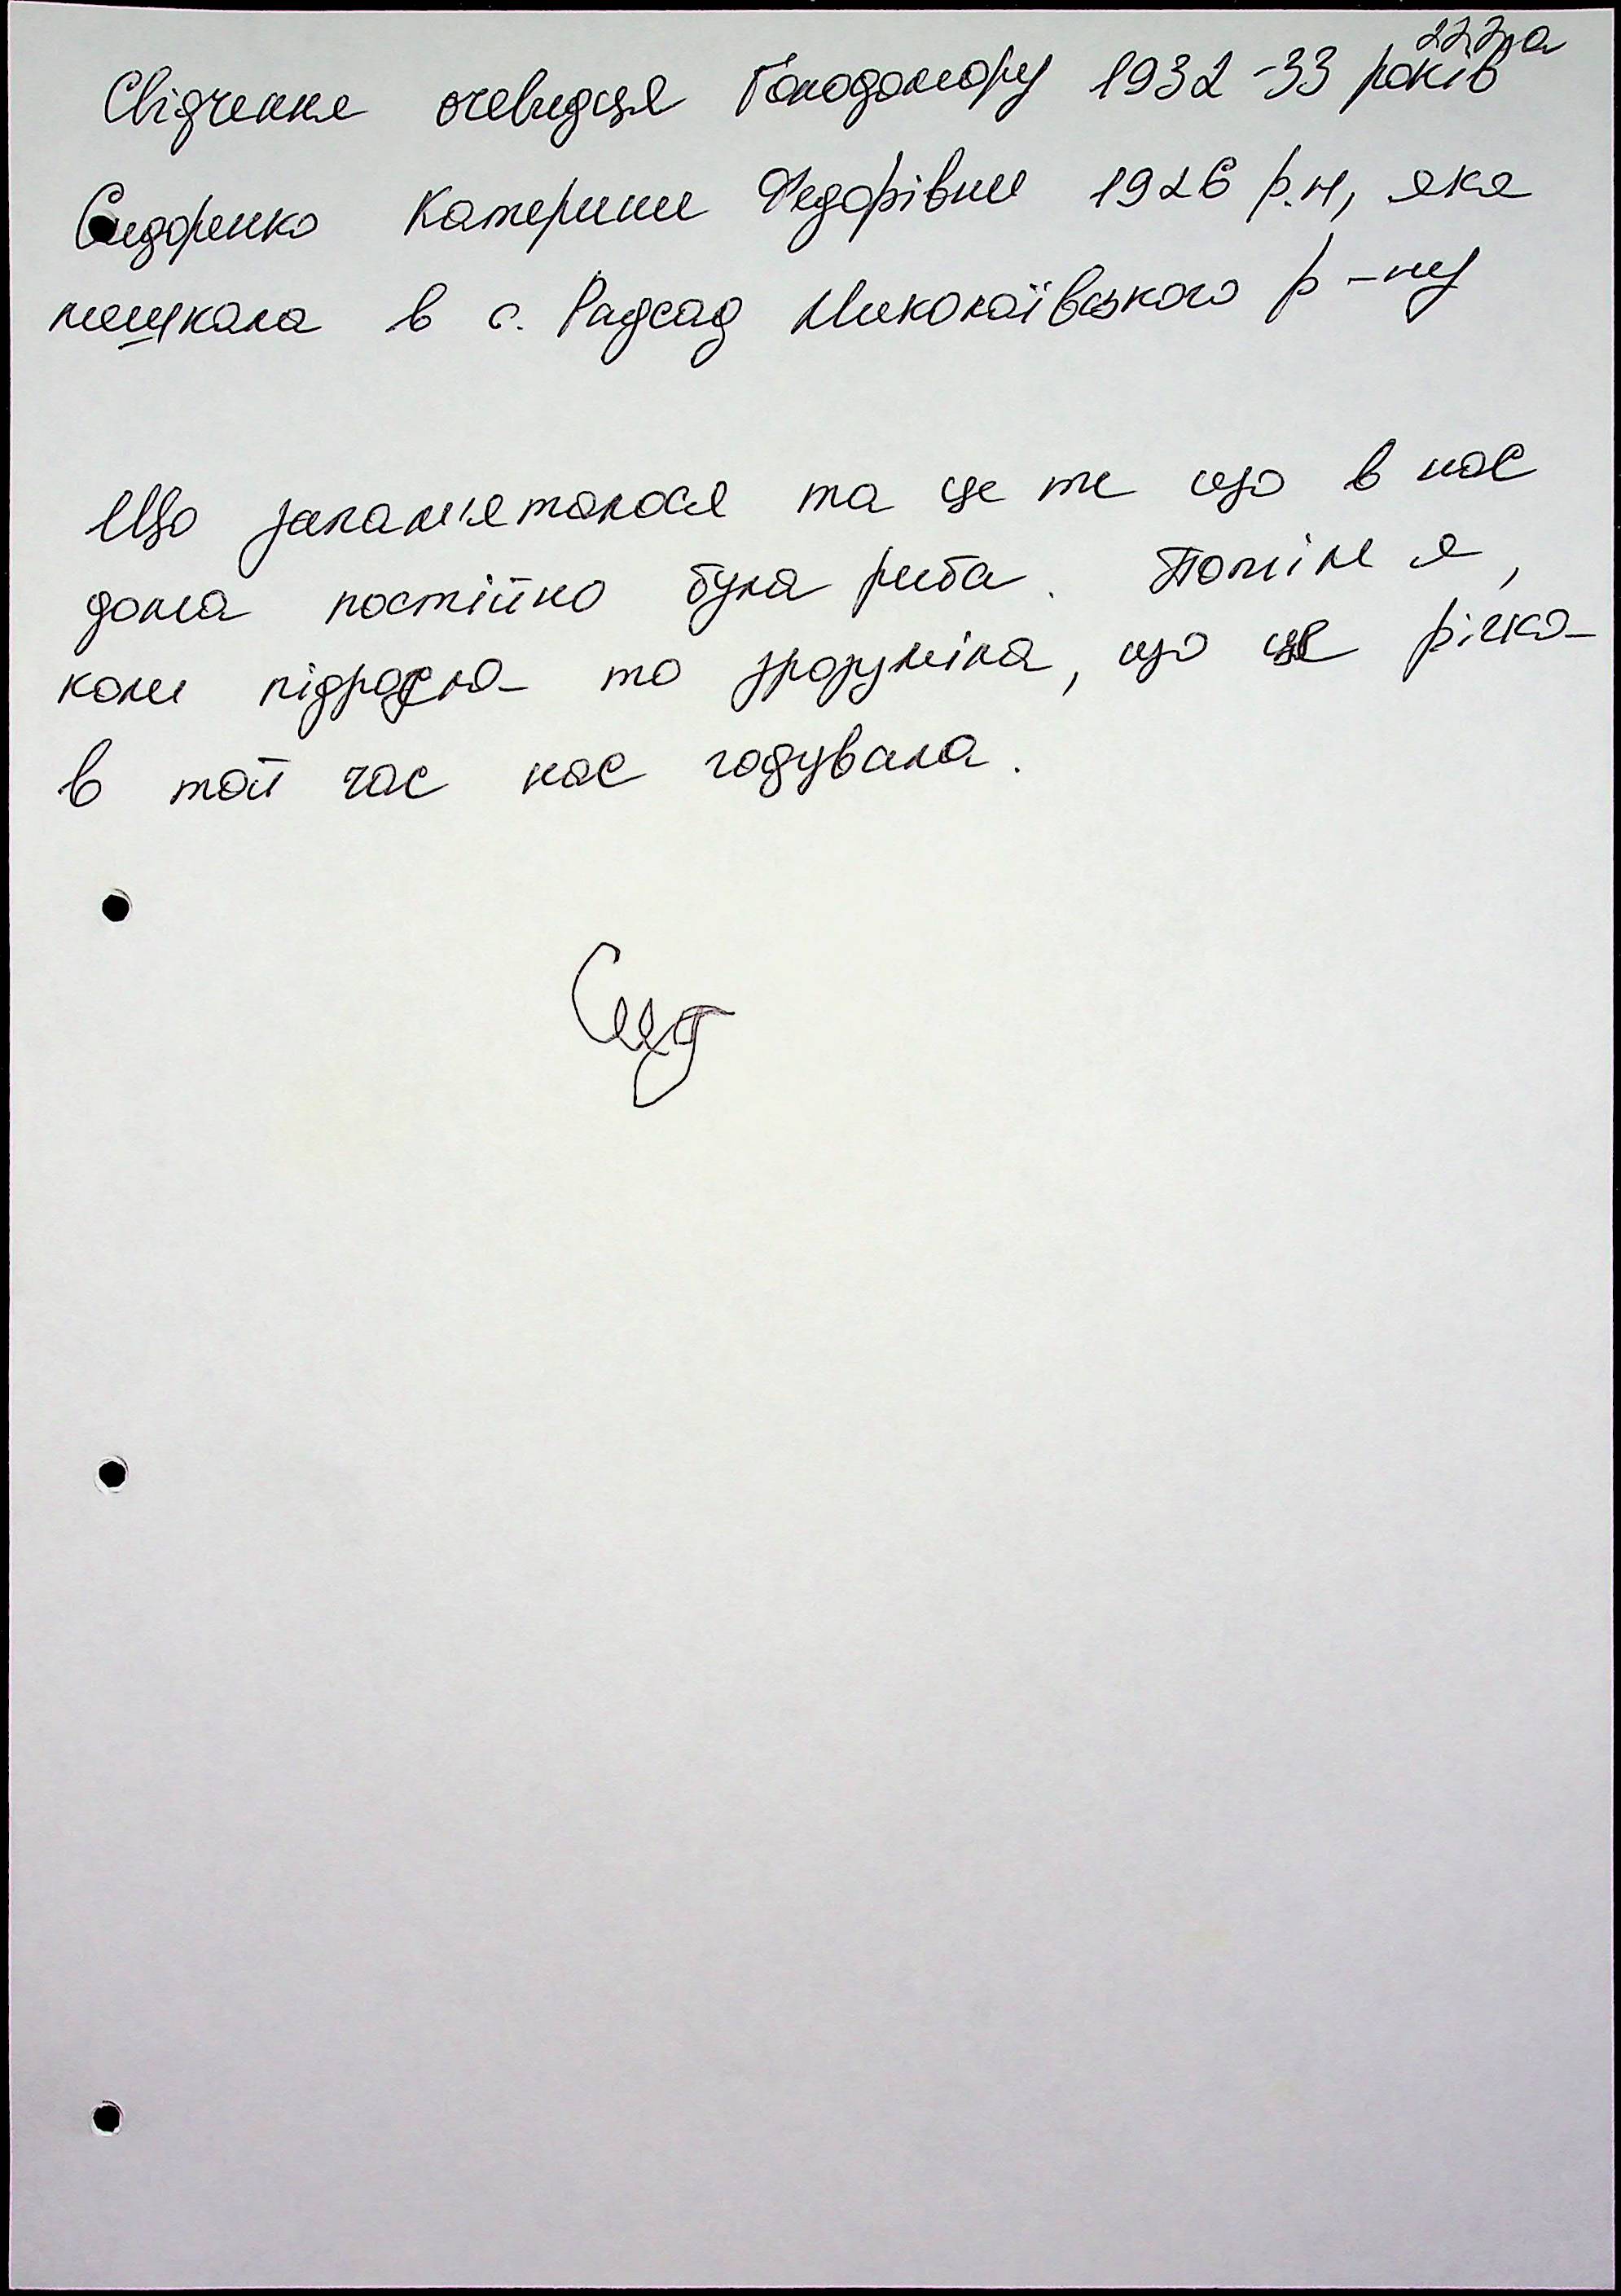 222а
Свідчення очевидця Голодомору 1932-33 років
Сидоренко Катерини Федорівни 1926 р.н, яка
мешкала в с. Радсад Миколаївського р-ну
Що запам'яталося та це те що в нас
дома постійно була риба. Потім я,
коли підросла то зрозуміла, що це річка
в той час нас годувала.
Сид